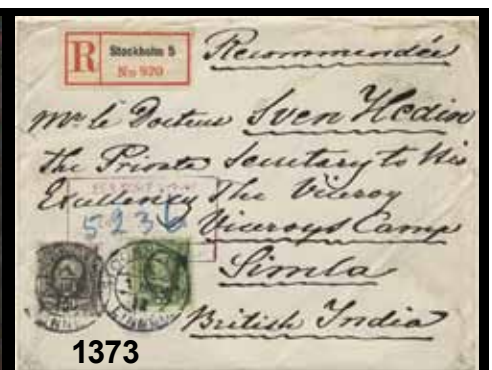 R Stockholm 5
No 920
Recommandée
Mr le Docteur Sven Hedin
The Private Secretary to His
Excellency The Viceroy
5236
Viceroys Camp
Simla
British India
1373